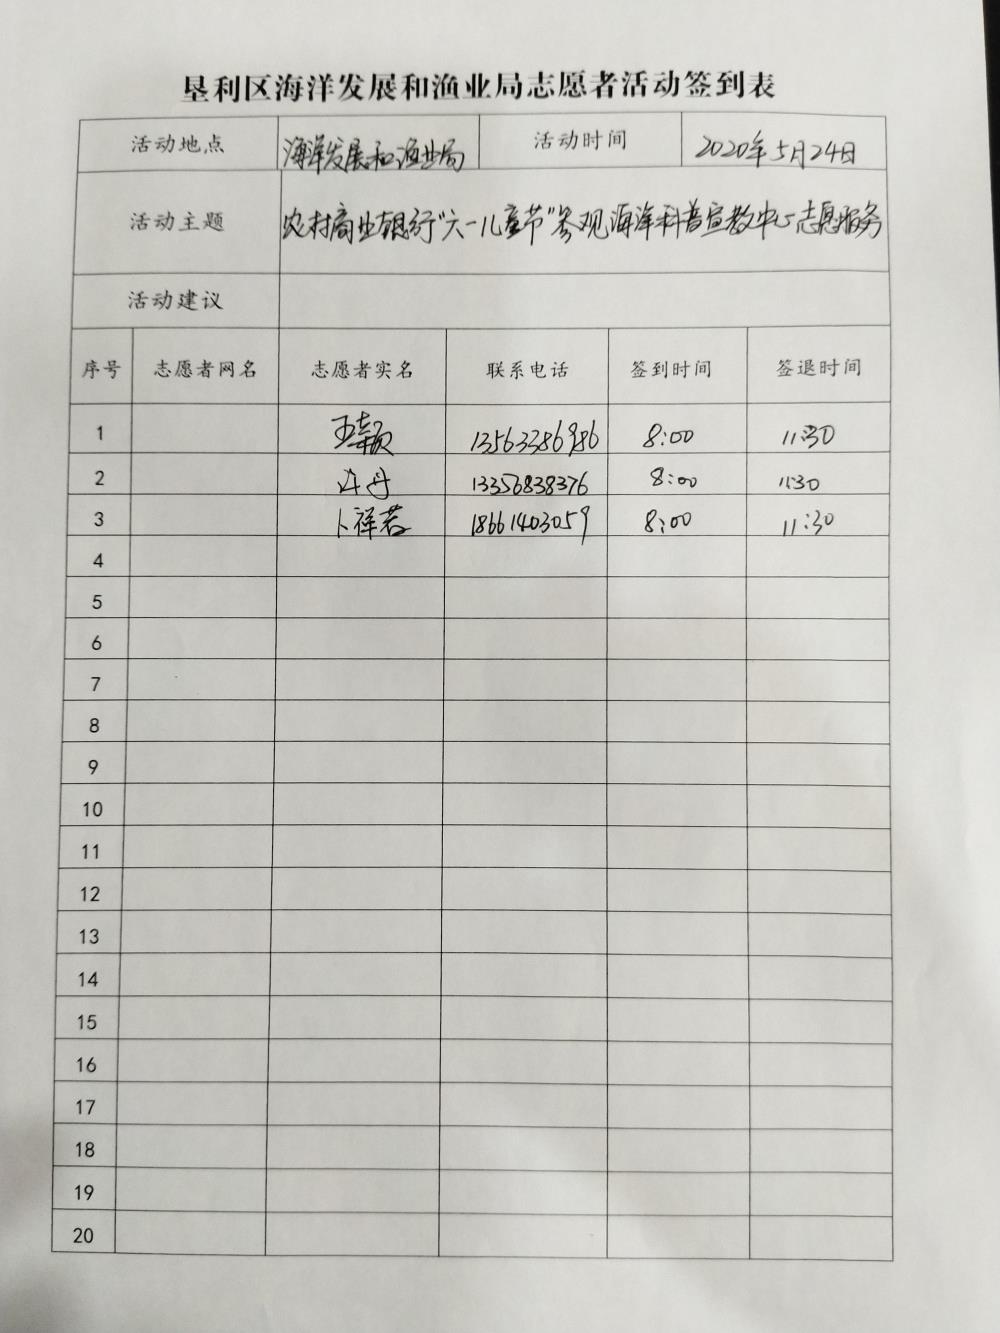 垦利区海洋发展和渔业局志愿者活动签到表
活动地点 海洋发展和渔业局 活动时间 2020年5月24日
活动主题 农村商业银行“六一儿童节”参观海洋科普宣教中心志愿服务
活动建议
序号 志愿者网名 志愿者实名 联系电话 签到时间 签退时间
1 13563386986 8:00 11:30
2 许丹 13356838376 8:00 11:30
3 卜祥君 18661403059 8:00 11:30
4
5
6
7
8
9
10
11
12
13
14
15
16
17
18
19
20